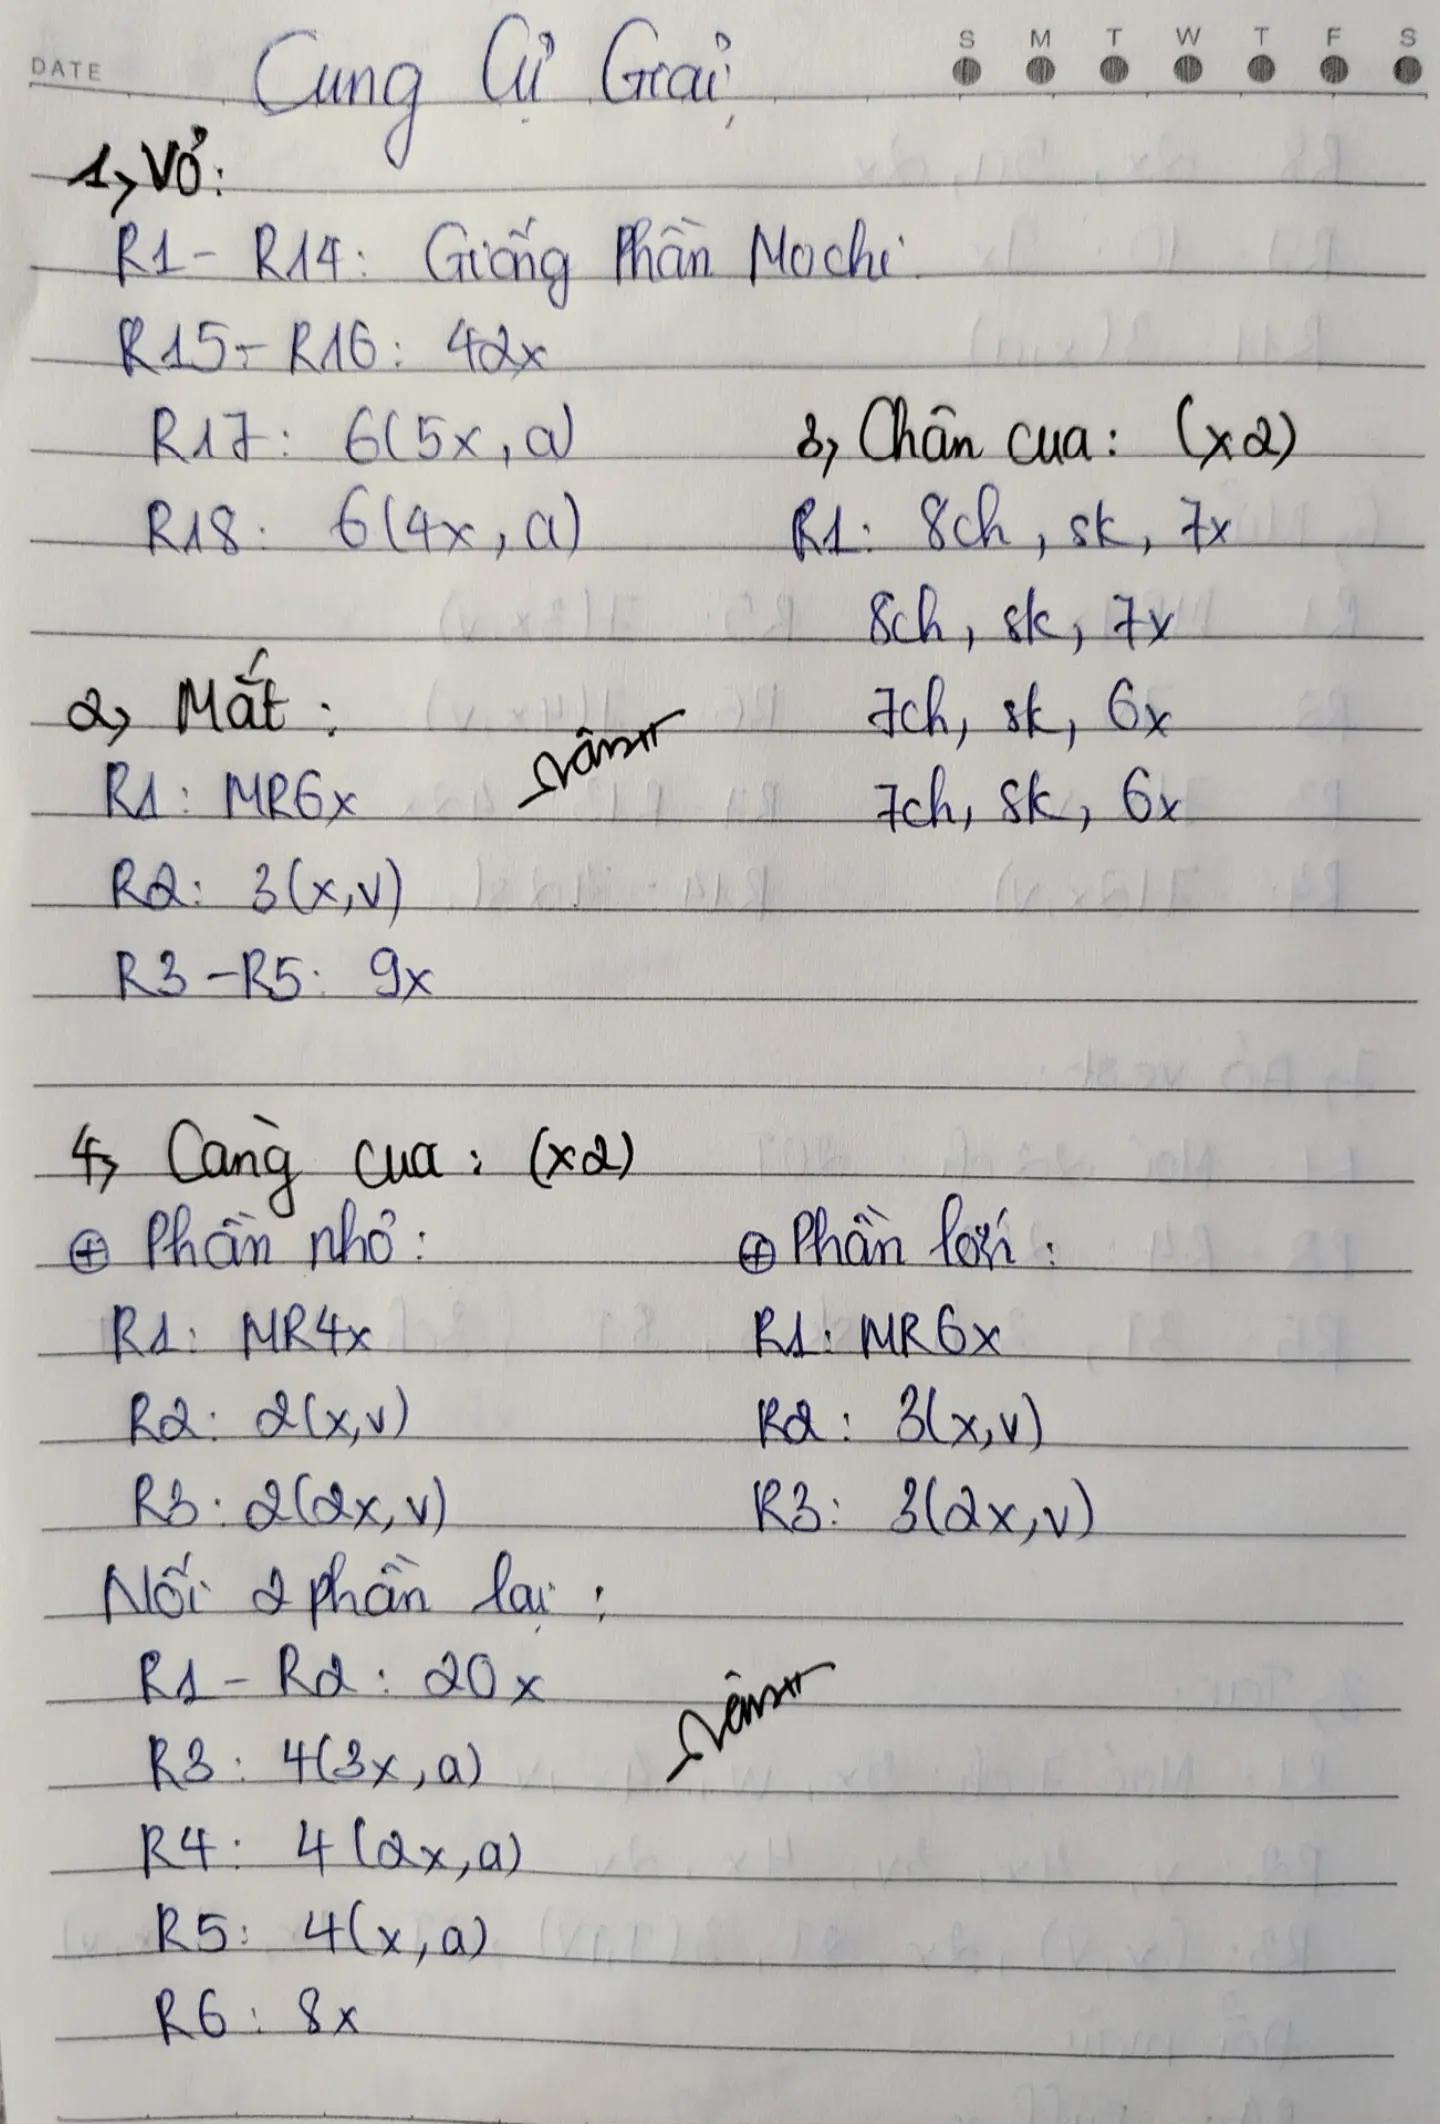 DATE
S M T W T F S
Cung Cự Giải
1, Vỏ:
R1 - R14: Giống Phần Mochi
R15 - R16: 42x
R17: 6(5x, a)
R18: 6(4x, a)
2, Mắt:
R1: MR6x
R2: 3(x,v)
R3 - R5: 9x
3, Chân cua: (x2)
R1: 8ch, sk, 7x
8ch, sk, 7x
7ch, sk, 6x
7ch, sk, 6x
4, Càng cua: (x2)
⊕ Phần nhỏ:
R1: MR4x
R2: 2(x,v)
R3: 2(2x, v)
⊕ Phần lớn:
R1: MR6x
R2: 3(x,v)
R3: 3(2x,v)
Nối 2 phần lại:
R1 - R2: 20x
R3: 4(3x, a)
R4: 4(2x, a)
R5: 4(x, a)
R6: 8x